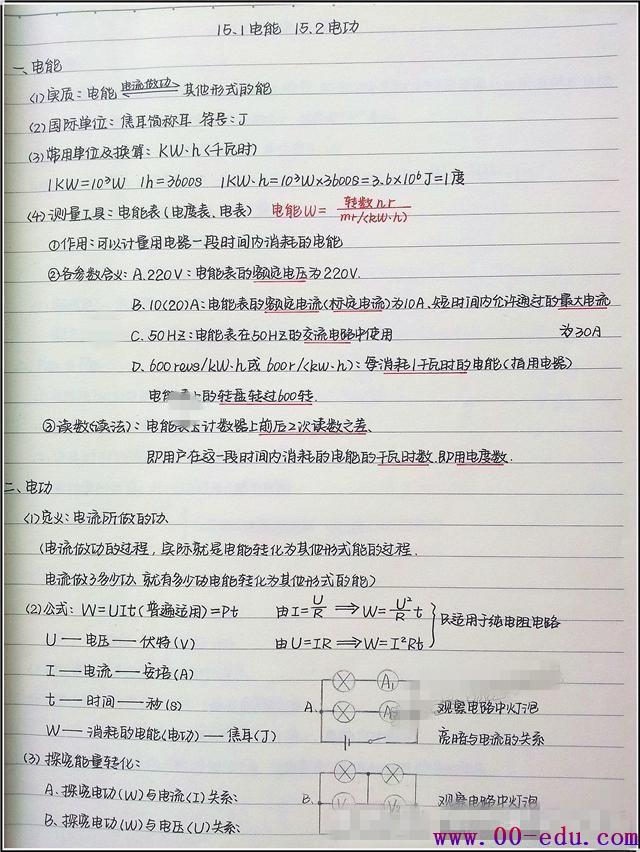 15.1电能 15.2电功
一、电能
(1)实质:电能 电流做功 其他形式的能
(2)国际单位:焦耳简称耳 符号:J
(3)常用单位及换算:KW·h(千瓦时)
1KW=10³W 1h=3600s 1KW·h=10³W×3600s=3.6×10⁶J=1度
(4)测量工具:电能表(电度表、电表) 电能W= 转数nr / mr/(kW·h)
①作用:可以计量用电器一段时间内消耗的电能
②各参数含义:A.220V:电能表的额定电压为220V.
B.10(20)A:电能表的额定电流(标定电流)为10A、短时间内允许通过的最大电流
C.50HZ:电能表在50HZ的交流电路中使用 为30A
D.600revs/kW·h或600r/(kW·h):每消耗1千瓦时的电能(指用电器)
电能 上的转盘转过600转.
③读数(读法):电能 计数器上前后2次读数之差、
即用户在这一段时间内消耗的电能的千瓦时数.即用电度数.
二、电功
(1)定义:电流所做的功、
(电流做功的过程,实际就是电能转化为其他形式能的过程.
电流做了多少功.就有多少电能转化为其他形式的能)
(2)公式:W=UIt(普遍适用)=Pt 由I=U/R ⟹W=U²/R t
U—电压—伏特(V) 由U=IR⟹W=I²Rt 只适用于纯电阻电路
I—电流—安培(A)
t—时间—秒(s) A. A₁ 观察电路中灯泡
W—消耗的电能(电功)—焦耳(J) 亮暗与电流的关系
(3)探究能量转化:
A、探究电功(W)与电流(I)关系: B. 观察电路中灯泡
B、探究电功(W)与电压(U)关系:
www.00-edu.com